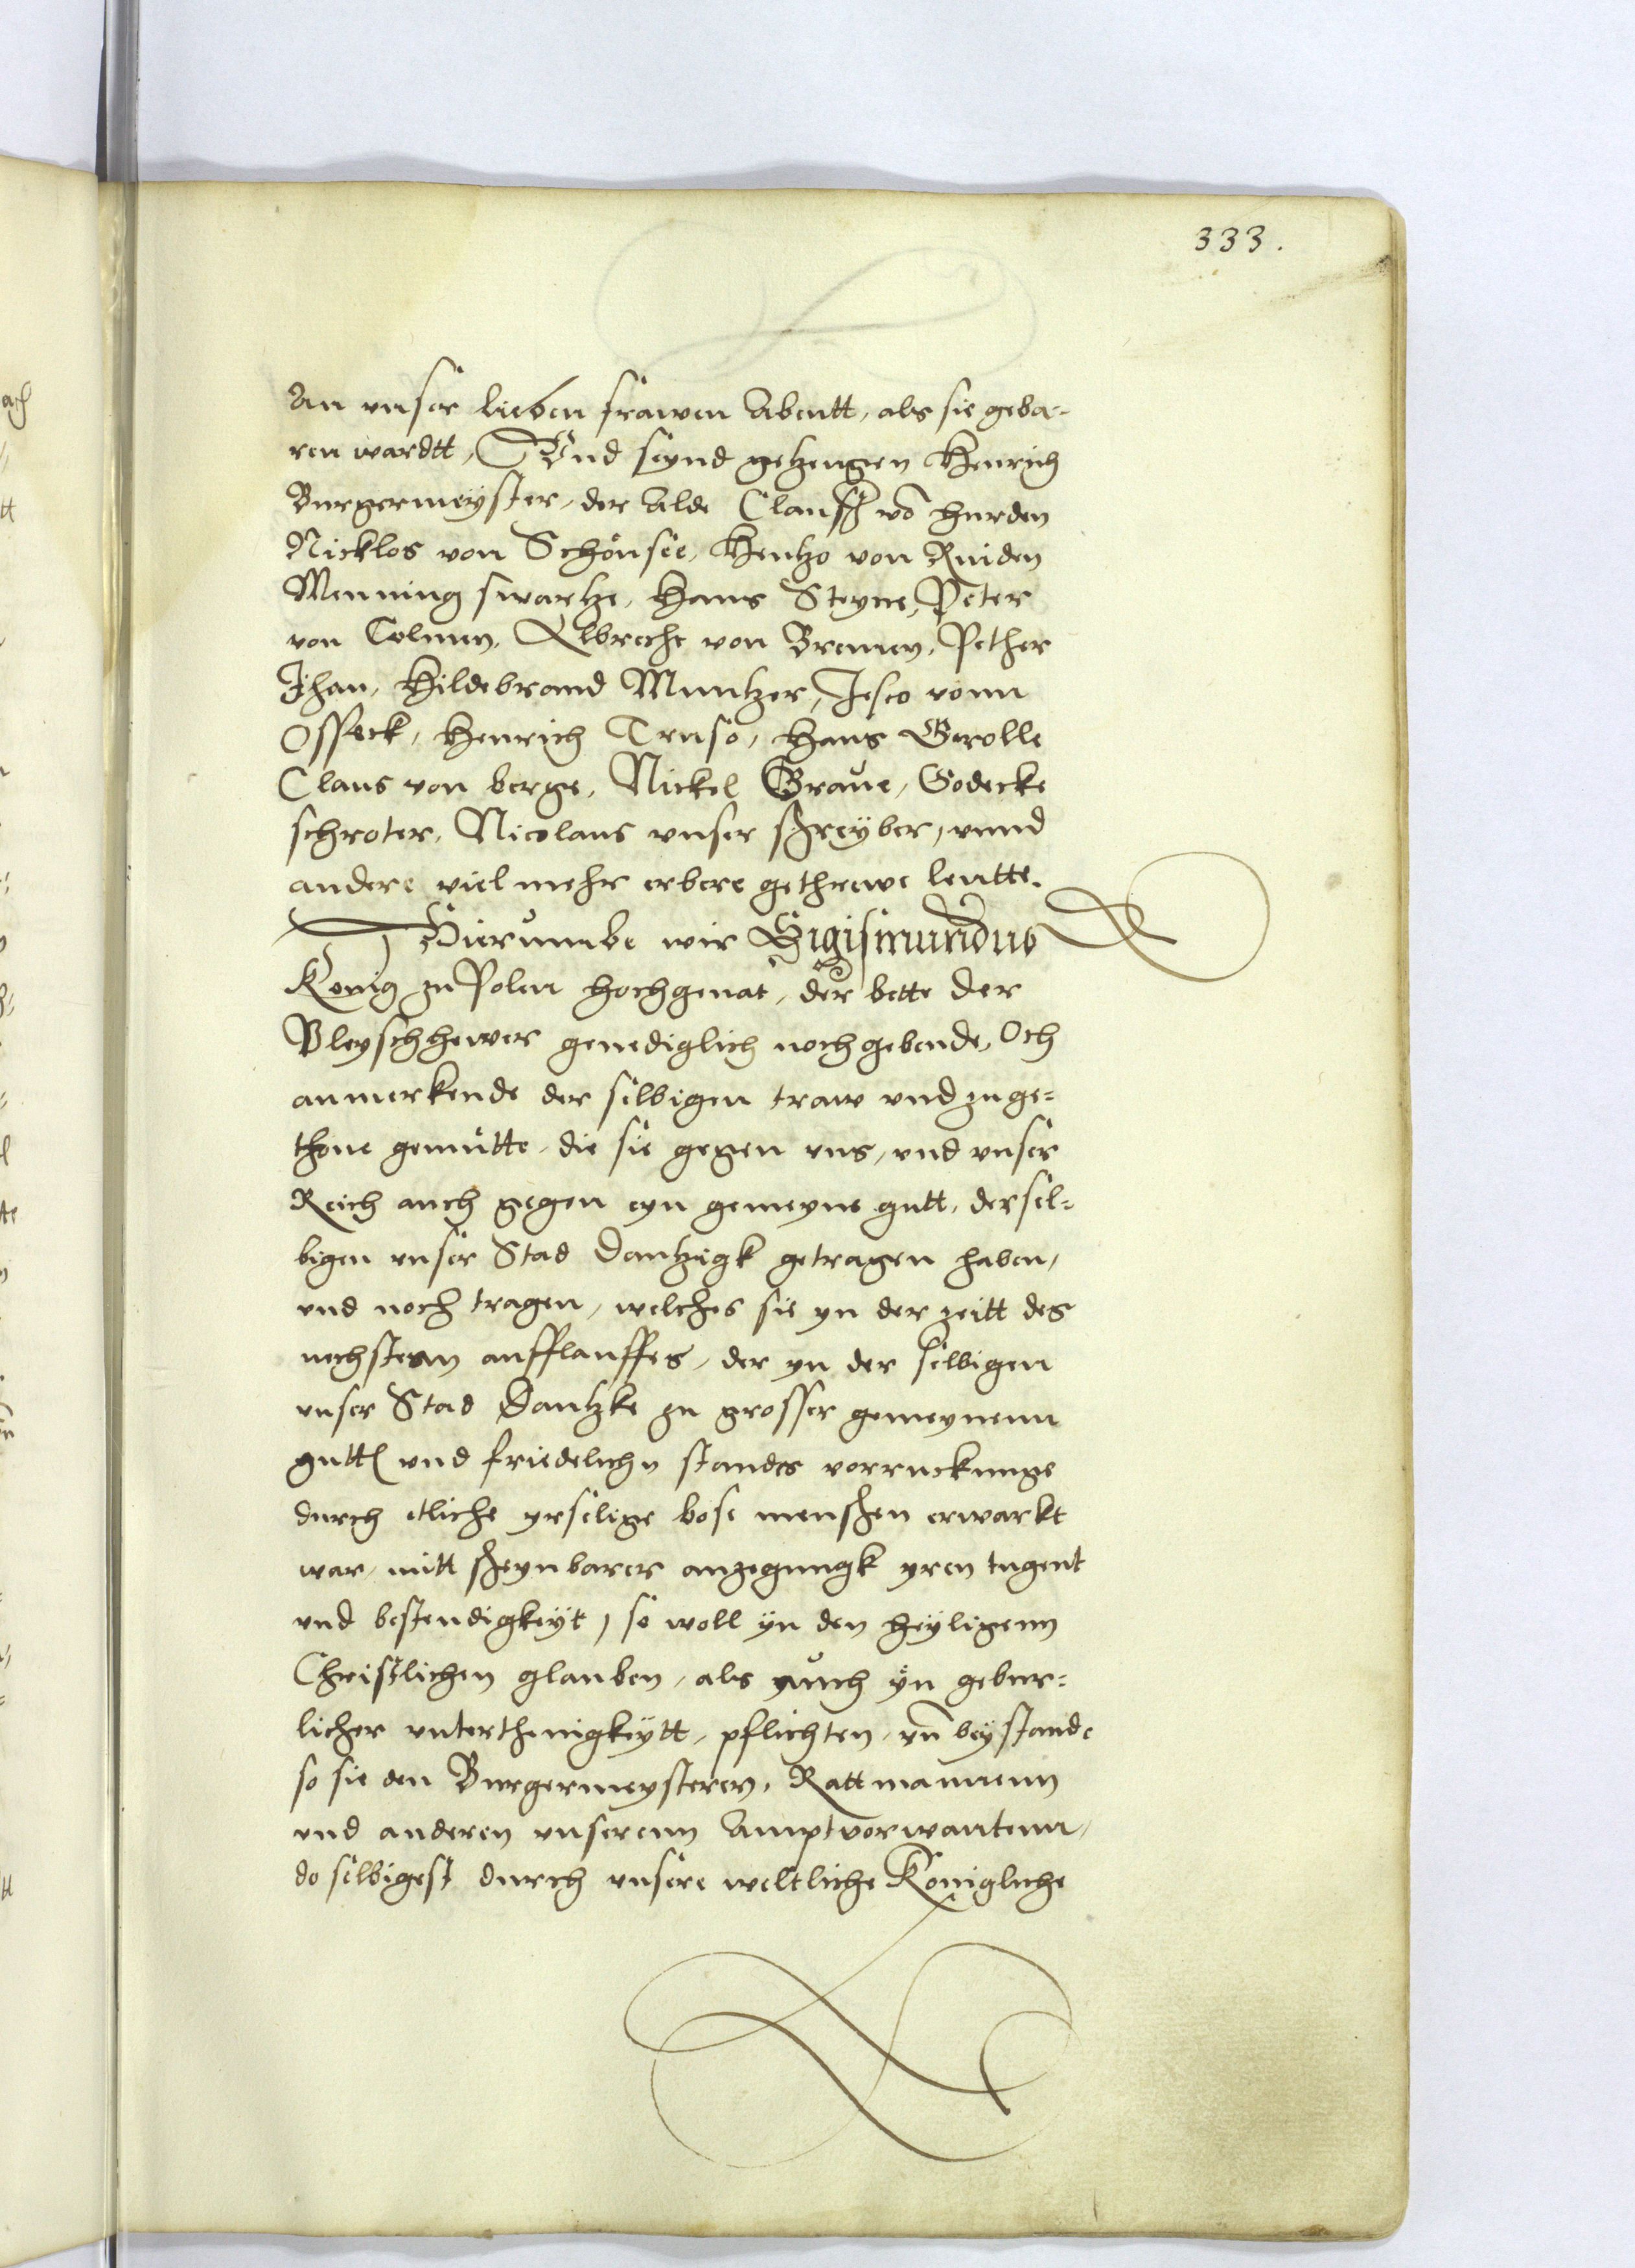 333.
An vnser lieben frawen Abentt, als sie gebo-
ren wardtt, Vnd seynd getzeugen Henrich
Burgermeyster, der Alde Clauss vō Hurden
Nicklos von Schönsee, Hentzo von Ruiden
Menning swartze, Hans Steyne, Peter
von Colmen, Albrecht von Bremen, Pether
Jhan, Hildebrand Muntzer, Jesco vonn
Osseck, Henrich Truso, Hans Grolle
Claus von berge, Nickel Graue, Godecke
schroter, Nicolaus vnser schreyber, vnnd
andere viel mehr erbere gethrewe leutte.
Hierumbe wir Sigismundus
Konig zu Polen hochgenāt, der bette der
Vleyschhewer genediglich nochgebende, Och
anmerkende der selbigen traw vnd zuge=
thone gemutte, die sie gegen vns, vnd vnser
Reich auch gegen eyn gemeyne gutt, dersel=
bigen vnser Stad Dantzigk getragen haben,
vnd noch tragen, welches sie yn der zeitt des
nechstenn aufflauffes, der yn der selbigen
vnser Stad Dantzke zu grosser gemeynenn
gutts vnd friedelichn standes vorruckunge
durch etliche yrselige bose menschen erwarkt
war, mitt scheynbarer anzegungk yren tugent
vnd bestendigkeyt, so woll yn den heyligenn
Christlichen glauben, als auch yn gebur=
licher vnterthenigkeytt, pflichten, vñ beystande
so sie den Burgermeysteren, Rattmannenn
vnd anderen vnserenn Amptvorwantenn,
do selbigest durch vnsere weltliche Konigliche